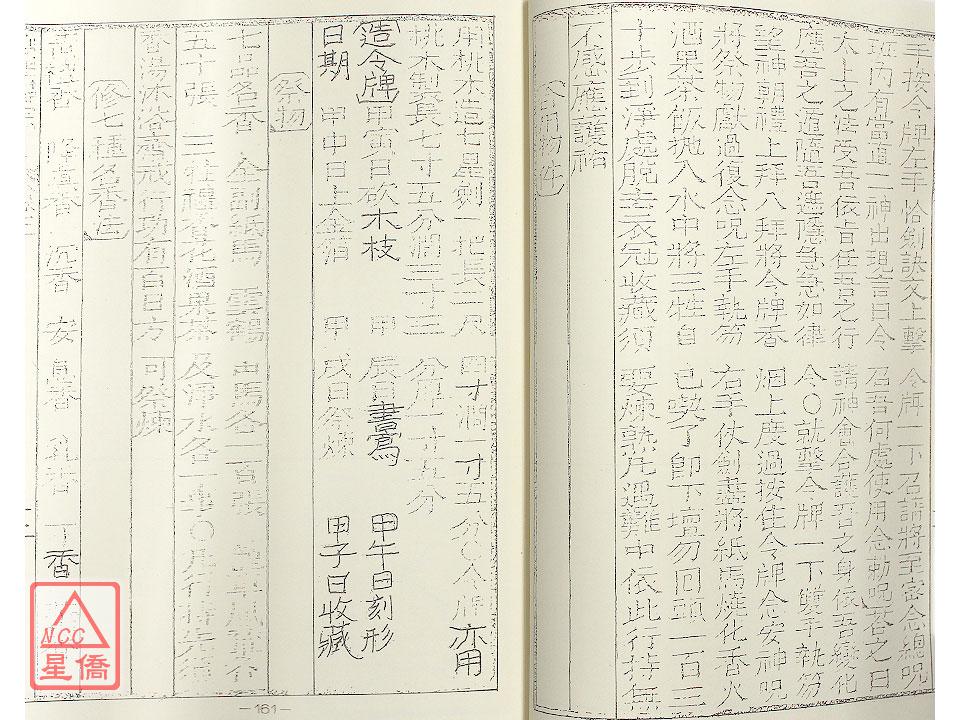 手按令牌左手恰劍訣又上擊令牌一下召請將王密念總咒
班內有當直二神出現言曰今召吾何處使用念勅咒吞之曰
太上之法受吾依旨任吾之行請神會合護吾之身依吾變化
應吾之道隨吾邊隱急急如律令○就擊令牌一下雙手執笏
望神朝禮上拜八拜將令牌香烟上度過按住令牌念安神咒
將祭物獻過復念咒左手執笏右手仗劍盡將紙馬燒化香火
酒果茶飯拋入水中將三牲自已喫了即下壇勿回頭一百三
十步到淨處脫去衣冠收藏須要煉熟凡遇難中依此行持無
不感應護祐
合用物件
用桃木造七星劍一把長二尺四寸濶一寸五分○令牌亦用
桃木製長七寸五分濶三寸三分厚一寸五分
造令牌 甲寅日砍木枝 甲辰日書寫 甲午日刻形
日期 甲申日上金箔 甲戌日祭煉 甲子日收藏
祭物
七品名香 金副紙馬 雲鶴 馬各一百張
五十張 三牲醴香花酒果茶及淨水各一 ○凡行持先須
香湯沐浴齋戒行功有百日方可祭煉
修七種名香法
香 降真香 沉香 安息香 乳香 丁香
NCC
星僑
—161—